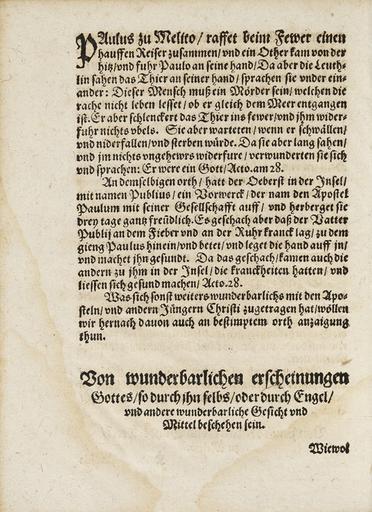 PAulus zu Melito/ raffet beim Fewer einen
hauffen Reiser zusammen/ vnd ein Other kam von der
hitz/ vnd fuhr Paulo an seine hand/ Da aber die Leuth-
lin sahen das Thier an seiner hand/ sprachen sie vnder ein-
ander: Dieser Mensch muß ein Mörder sein/ welchen die
rache nicht leben lesset/ ob er gleich dem Meer entgangen
ist. Er aber schlenckert das Thier ins fewer/ vnd jhm wider-
fuhr nichts vbels. Sie aber warteten/ wenn er schwällen/
vnd niderfallen/ vnd sterben würde. Da sie aber lang sahen/
vnd jm nichts vngehewrs widerfure/ verwunderten sie sich
vnd sprachen: Er were ein Gott/ Acto. am 28.
An demselbigen orth/ hatt der Oeberst in der Insel/
mit namen Publius/ ein Vorwerck/ der nam den Apostel
Paulum mit seiner Gesellschafft auff/ vnd herberget sie
drey tage gantz freüdlich. Es geschach aber daß der Vatter
Publij an dem Fieber vnd an der Ruhr kranck lag/ zu dem
gieng Paulus hinein/ vnd betet/ vnd leget die hand auff jn/
vnd machet jhn gesundt. Da das geschach/ kamen auch die
andern zu jhm in der Insel/ die kranckheiten hatten/ vnd
liessen sich gesund machen/ Acto. 28.
Was sich sonst weiters wunderbarlichs mit den Apo-
steln/ vnd andern Jüngern Christi zugetragen hat/ wöllen
wir hernach dauon auch an bestimptem orth anzaigung
thun.
Von wunderbarlichen erscheinungen
Gottes/ so durch jhn selbs/ oder durch Engel/
vnd andere wunderbarliche Gesicht vnd
Mittel beschehen sein.
Wiewol